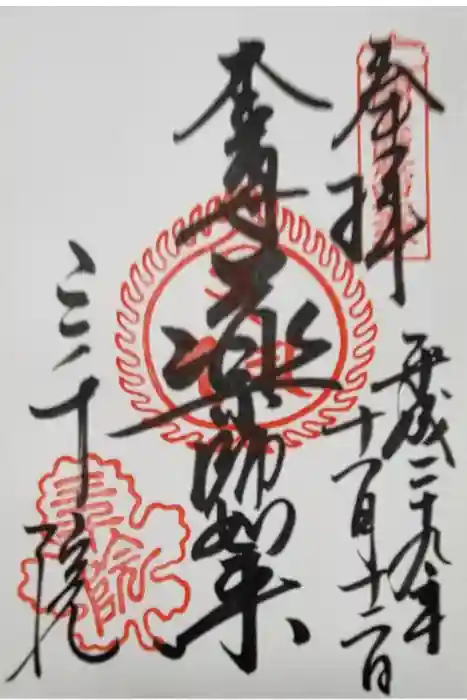 奉拝
平成二十九年
十一月十二日
本尊薬師如来
三千院